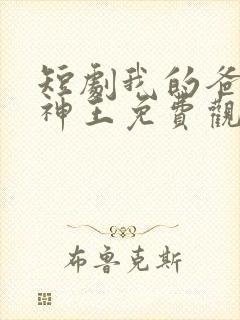 短劇我的爸
神王免費觀
布魯克斯